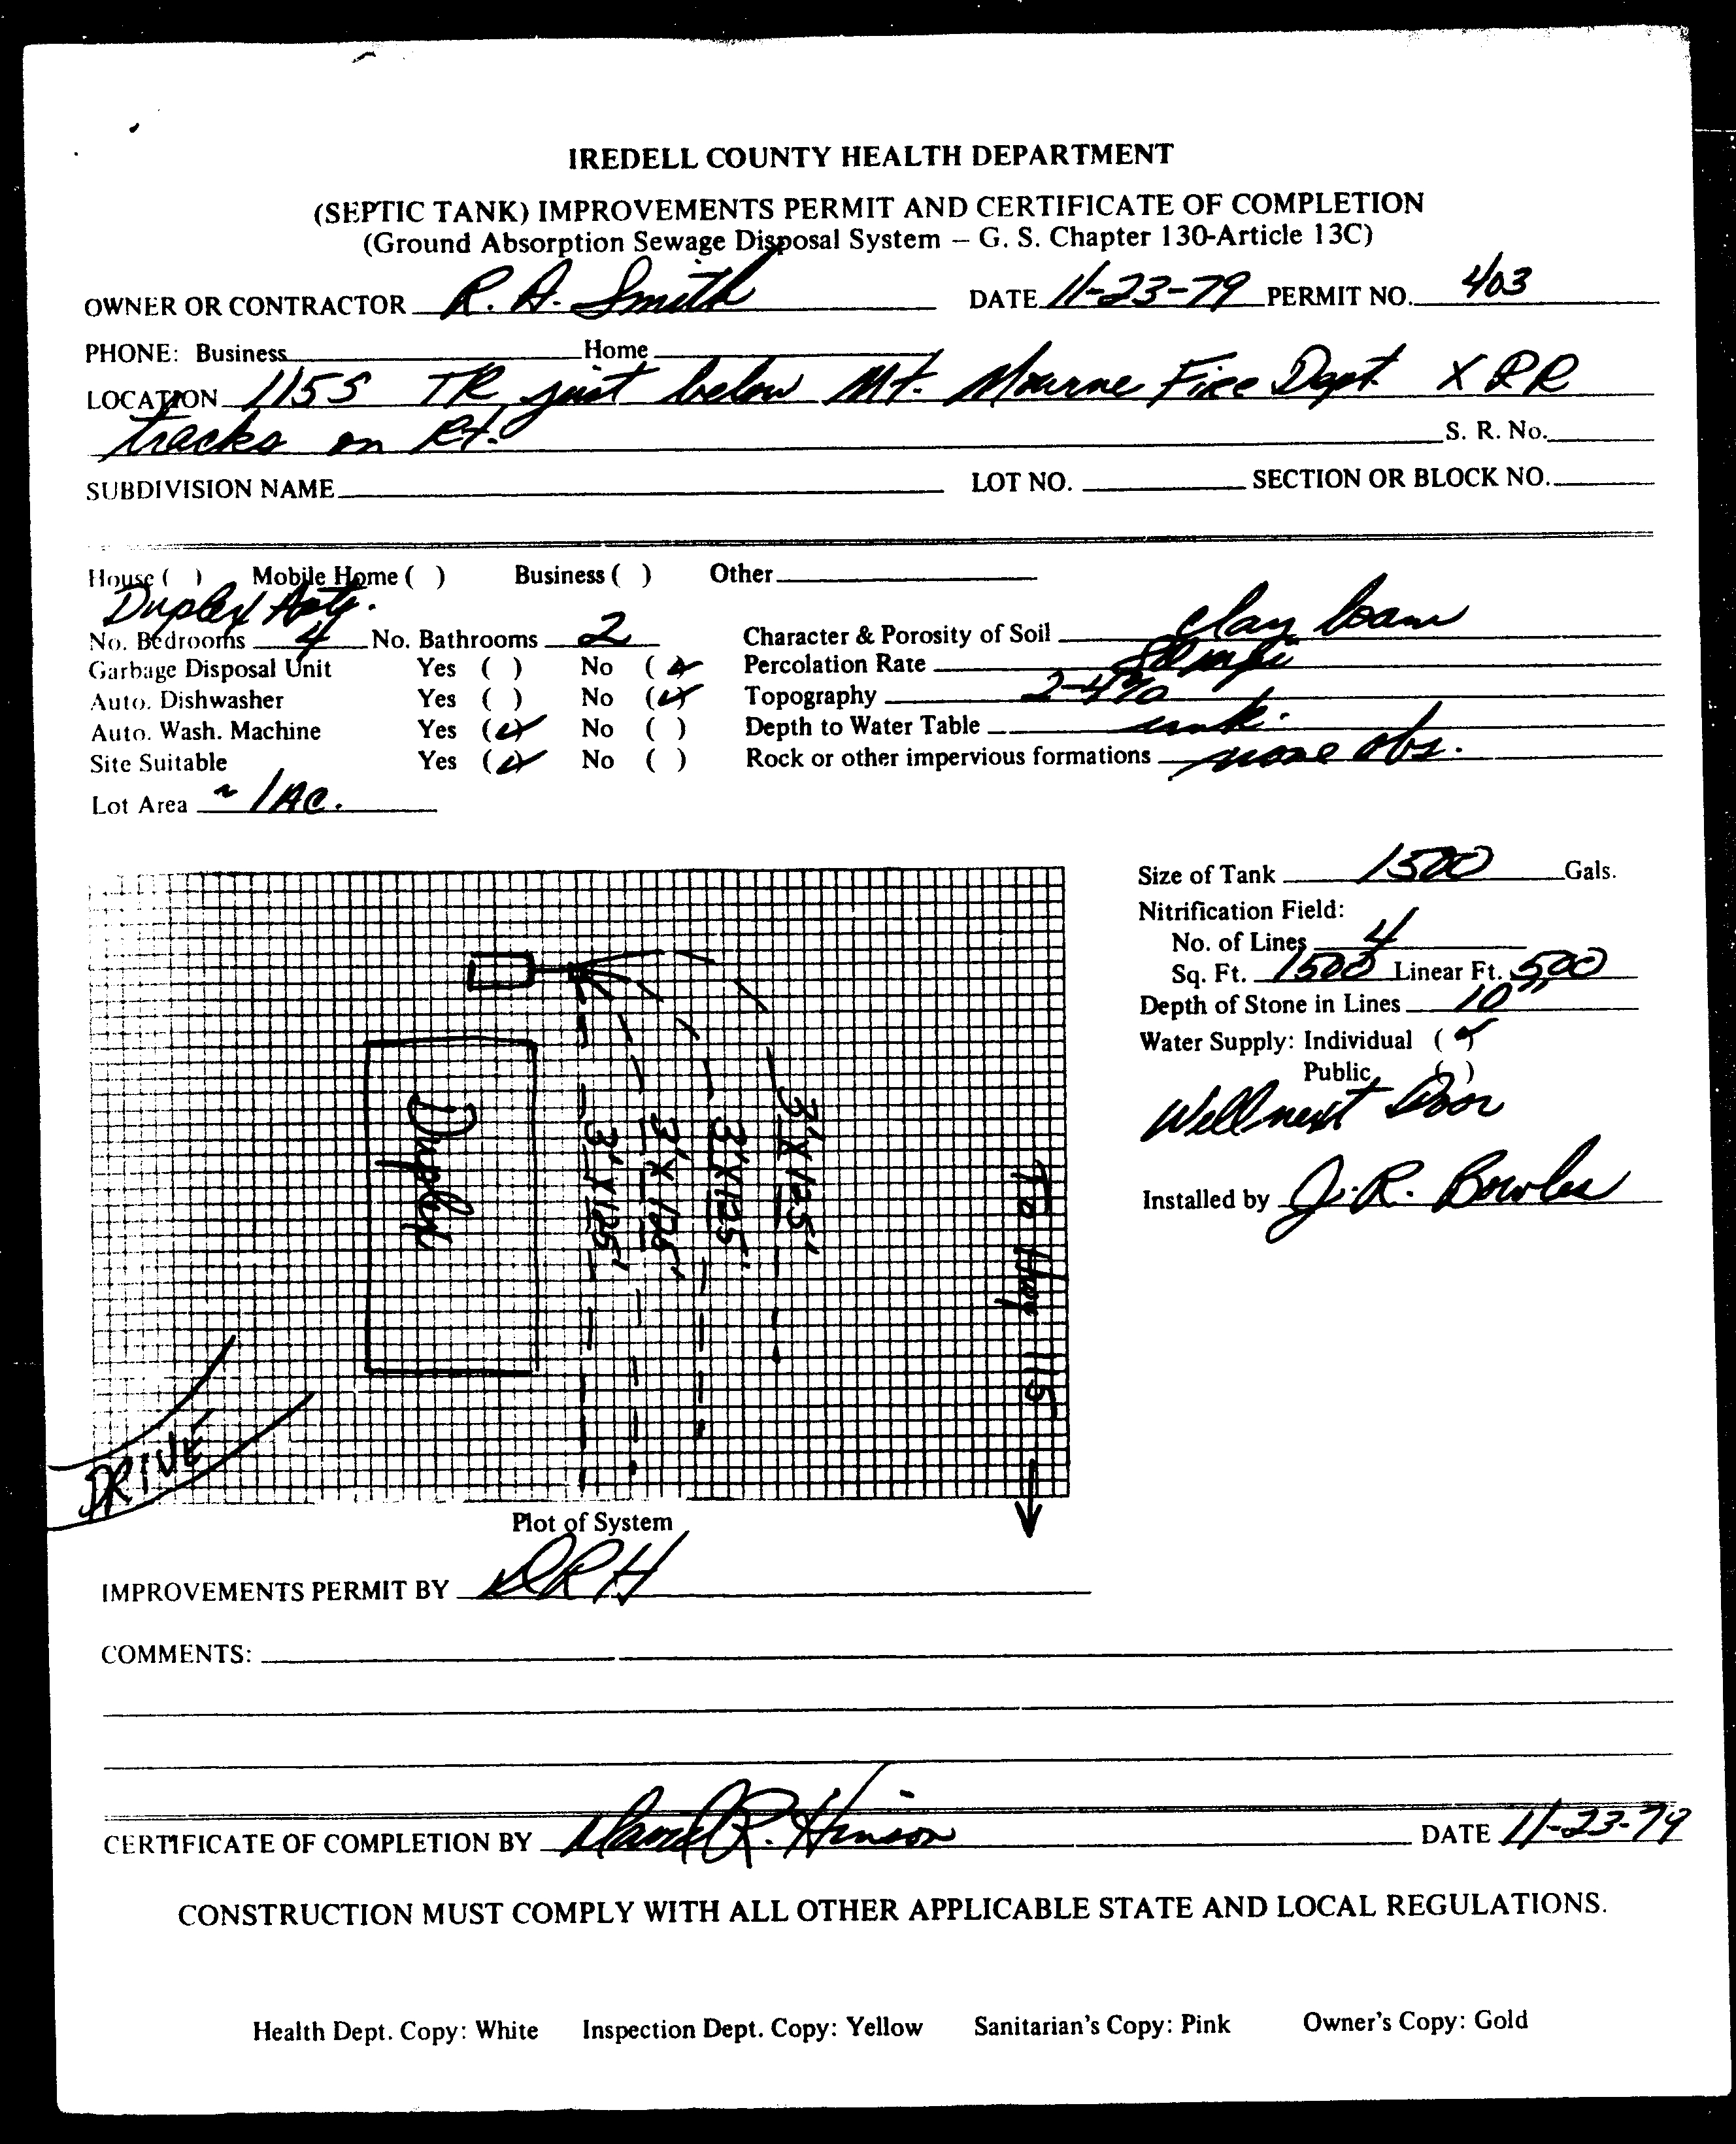 IREDELL COUNTY HEALTH DEPARTMENT
(SEPTIC TANK) IMPROVEMENTS PERMIT AND CERTIFICATE OF COMPLETION
(Ground Absorption Sewage Disposal System – G. S. Chapter 130-Article 13C)
OWNER OR CONTRACTOR R. A. Smith DATE 11-23-79 PERMIT NO. 403
PHONE: Business Home
LOCATION 115S TR just below Mt. Mourne Fire Dept X RR
tracks on Rt. S. R. No.
SUBDIVISION NAME LOT NO. SECTION OR BLOCK NO.
House ( ) Mobile Home ( ) Business ( ) Other
Duplex Apts.
No. Bedrooms 4 No. Bathrooms 2 Character & Porosity of Soil clay loam
Garbage Disposal Unit Yes ( ) No (✓) Percolation Rate
Auto. Dishwasher Yes ( ) No (✓) Topography 2-4%
Auto. Wash. Machine Yes (✓) No ( ) Depth to Water Table unk.
Site Suitable Yes (✓) No ( ) Rock or other impervious formations none obs.
Lot Area ~ 1 AC.
Size of Tank 1500 Gals.
Nitrification Field:
No. of Lines 4
Sq. Ft. 1500 Linear Ft. 500
Depth of Stone in Lines 10"
Water Supply: Individual (✓)
Public ( )
Well next Door
Installed by J. R. Bowles
Duplex
3' X 125'
3' X 125'
3' X 125'
3' X 125'
To Hwy 115
DRIVE
Plot of System
IMPROVEMENTS PERMIT BY DRH
COMMENTS:
CERTIFICATE OF COMPLETION BY David R. Hinson DATE 11-23-79
CONSTRUCTION MUST COMPLY WITH ALL OTHER APPLICABLE STATE AND LOCAL REGULATIONS.
Health Dept. Copy: White Inspection Dept. Copy: Yellow Sanitarian's Copy: Pink Owner's Copy: Gold